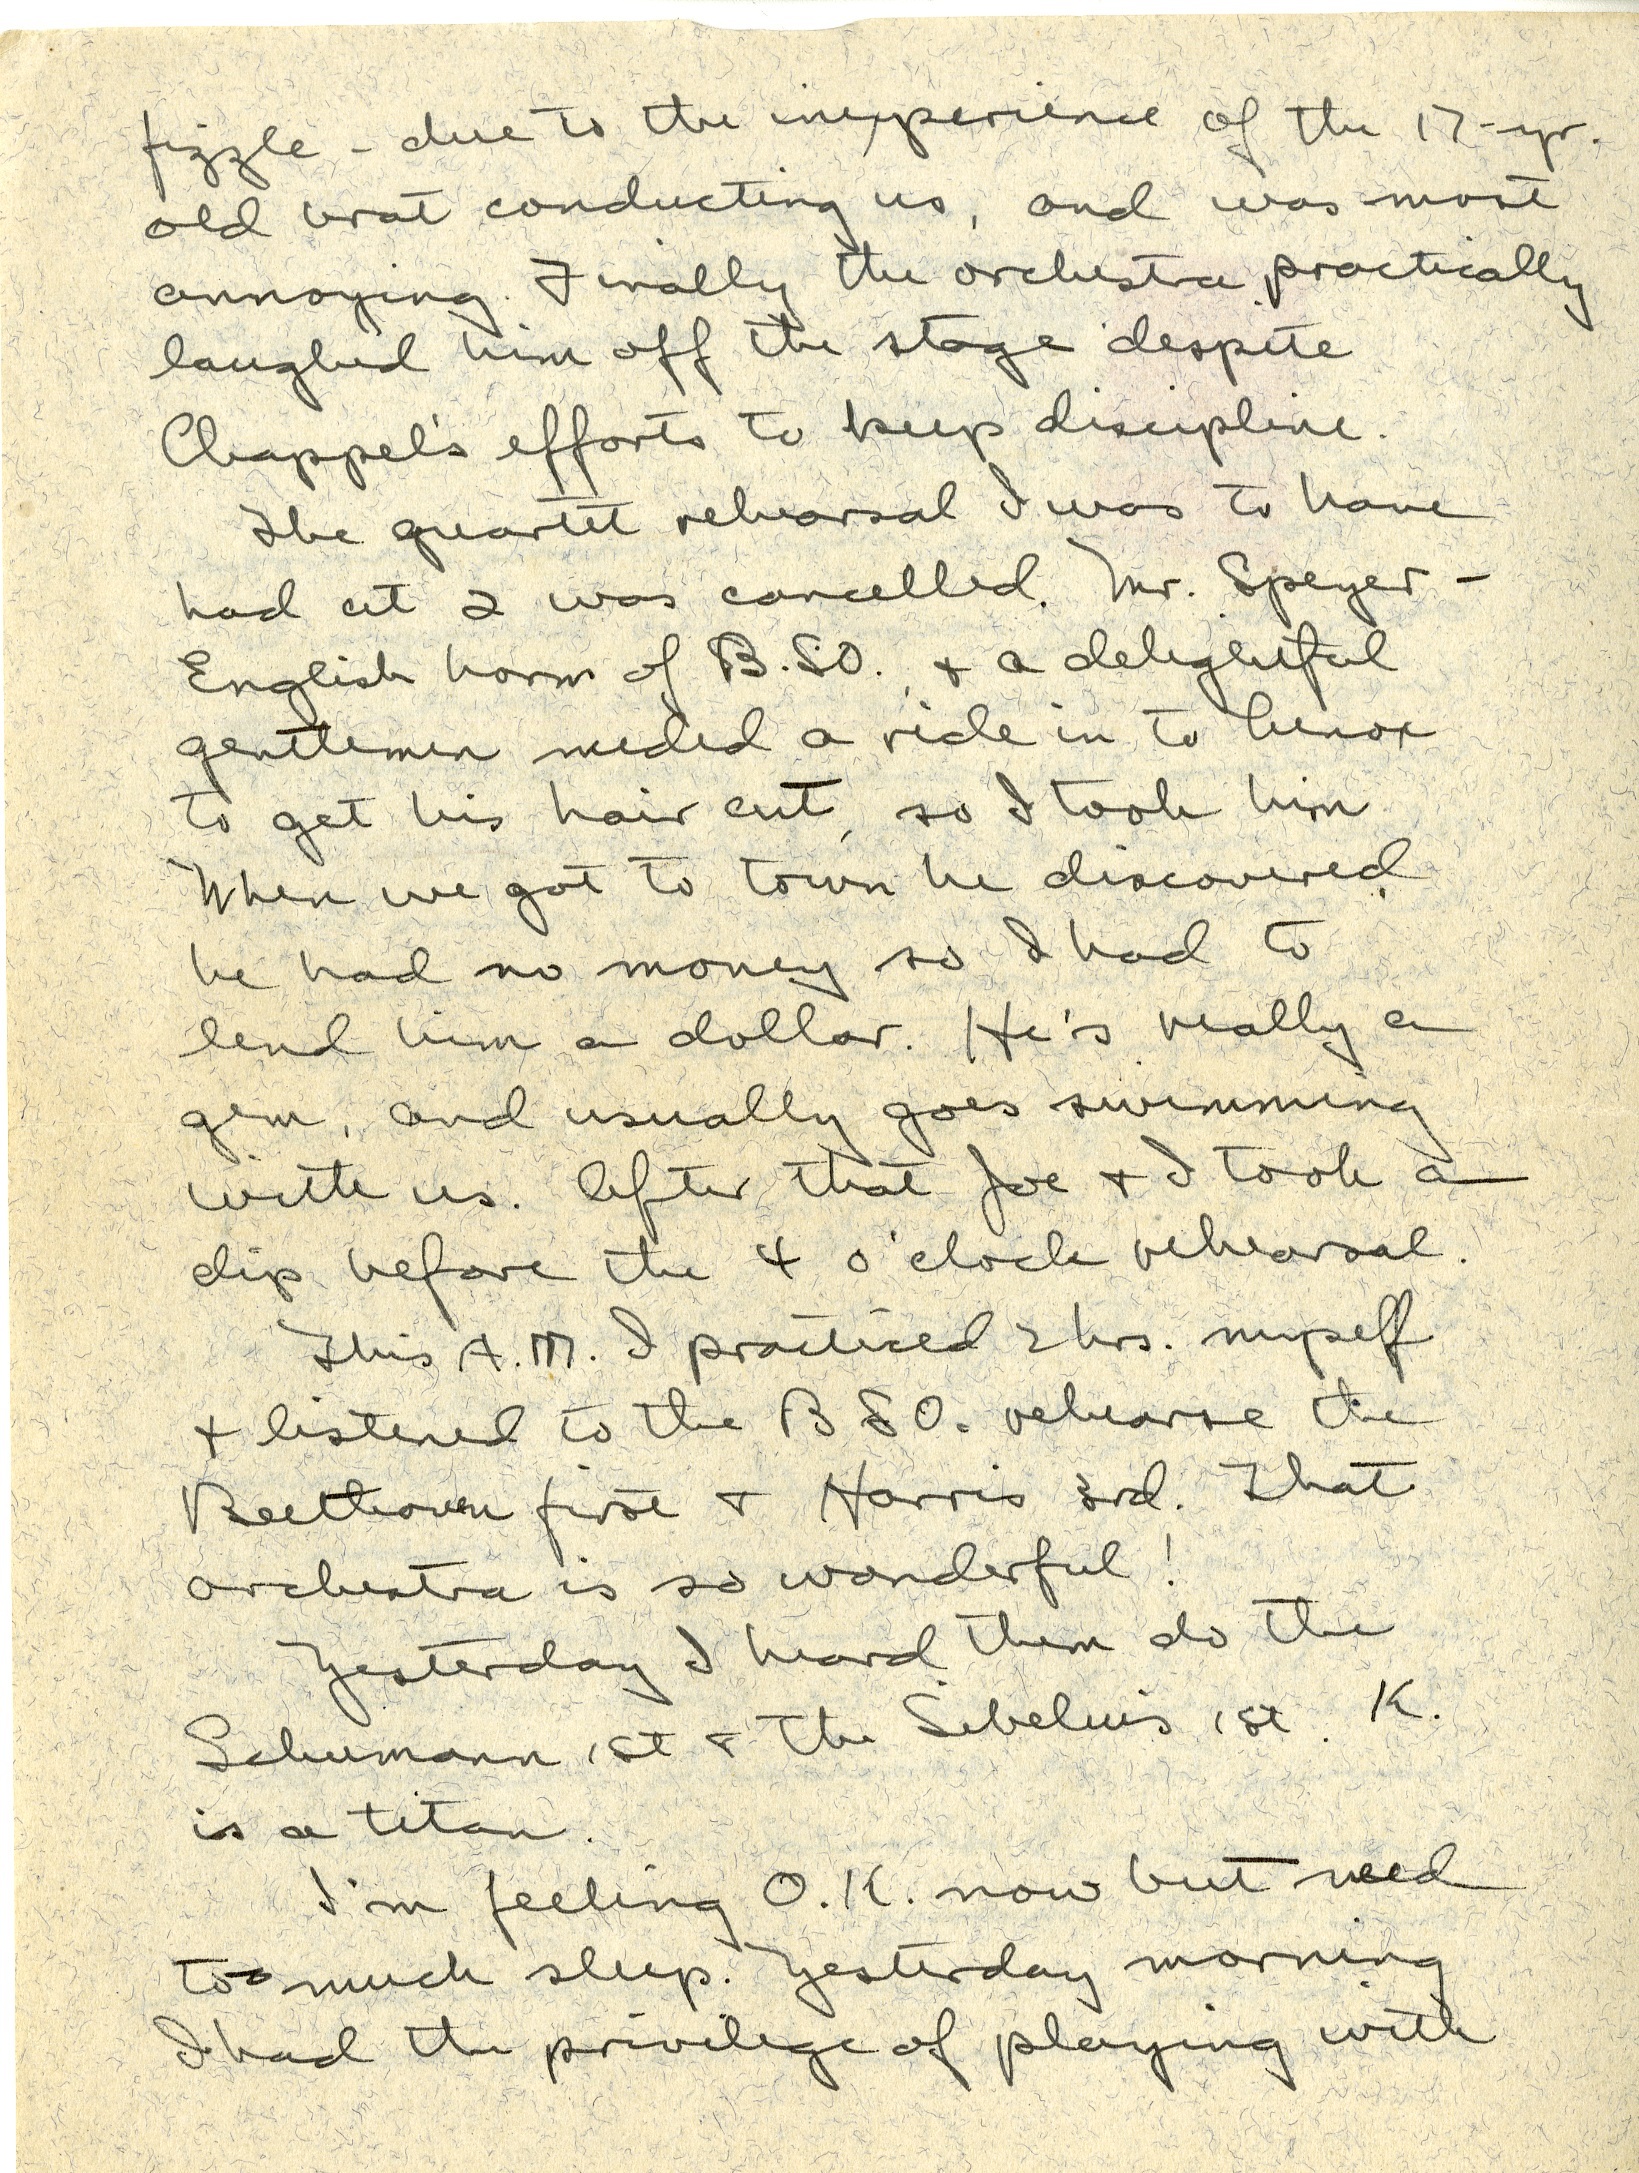 fizzle - due to the inexperience of the 17-yr.
old brat conducting us, and was most
annoying. Finally the orchestra practically
laughed him off the stage despite
Chappel's efforts to keep discipline.
The quartet rehearsal I was to have
had at 2 was cancelled. Mr. Speyer -
English horn of B.SO. & a delightful
gentlemen needed a ride in to Lenox
to get his hair cut, so I took him
When we got to town he discovered
he had no money so I had to
lend him a dollar. He's really a
gem, and usually goes swimming
with us. After that Joe & I took a
dip before the 4 o'clock rehearsal.
This A.M. I practiced 2 hrs. myself
& listened to the BSO. rehearse the
Beethoven first & Harris 3rd. That
orchestra is so wonderful!
Yesterday I heard them do the
Schumann 1st & the Sibelius 1st. K.
is a titan.
I'm feeling O.K. now but need
too much sleep. Yesterday morning
I had the privilege of playing with